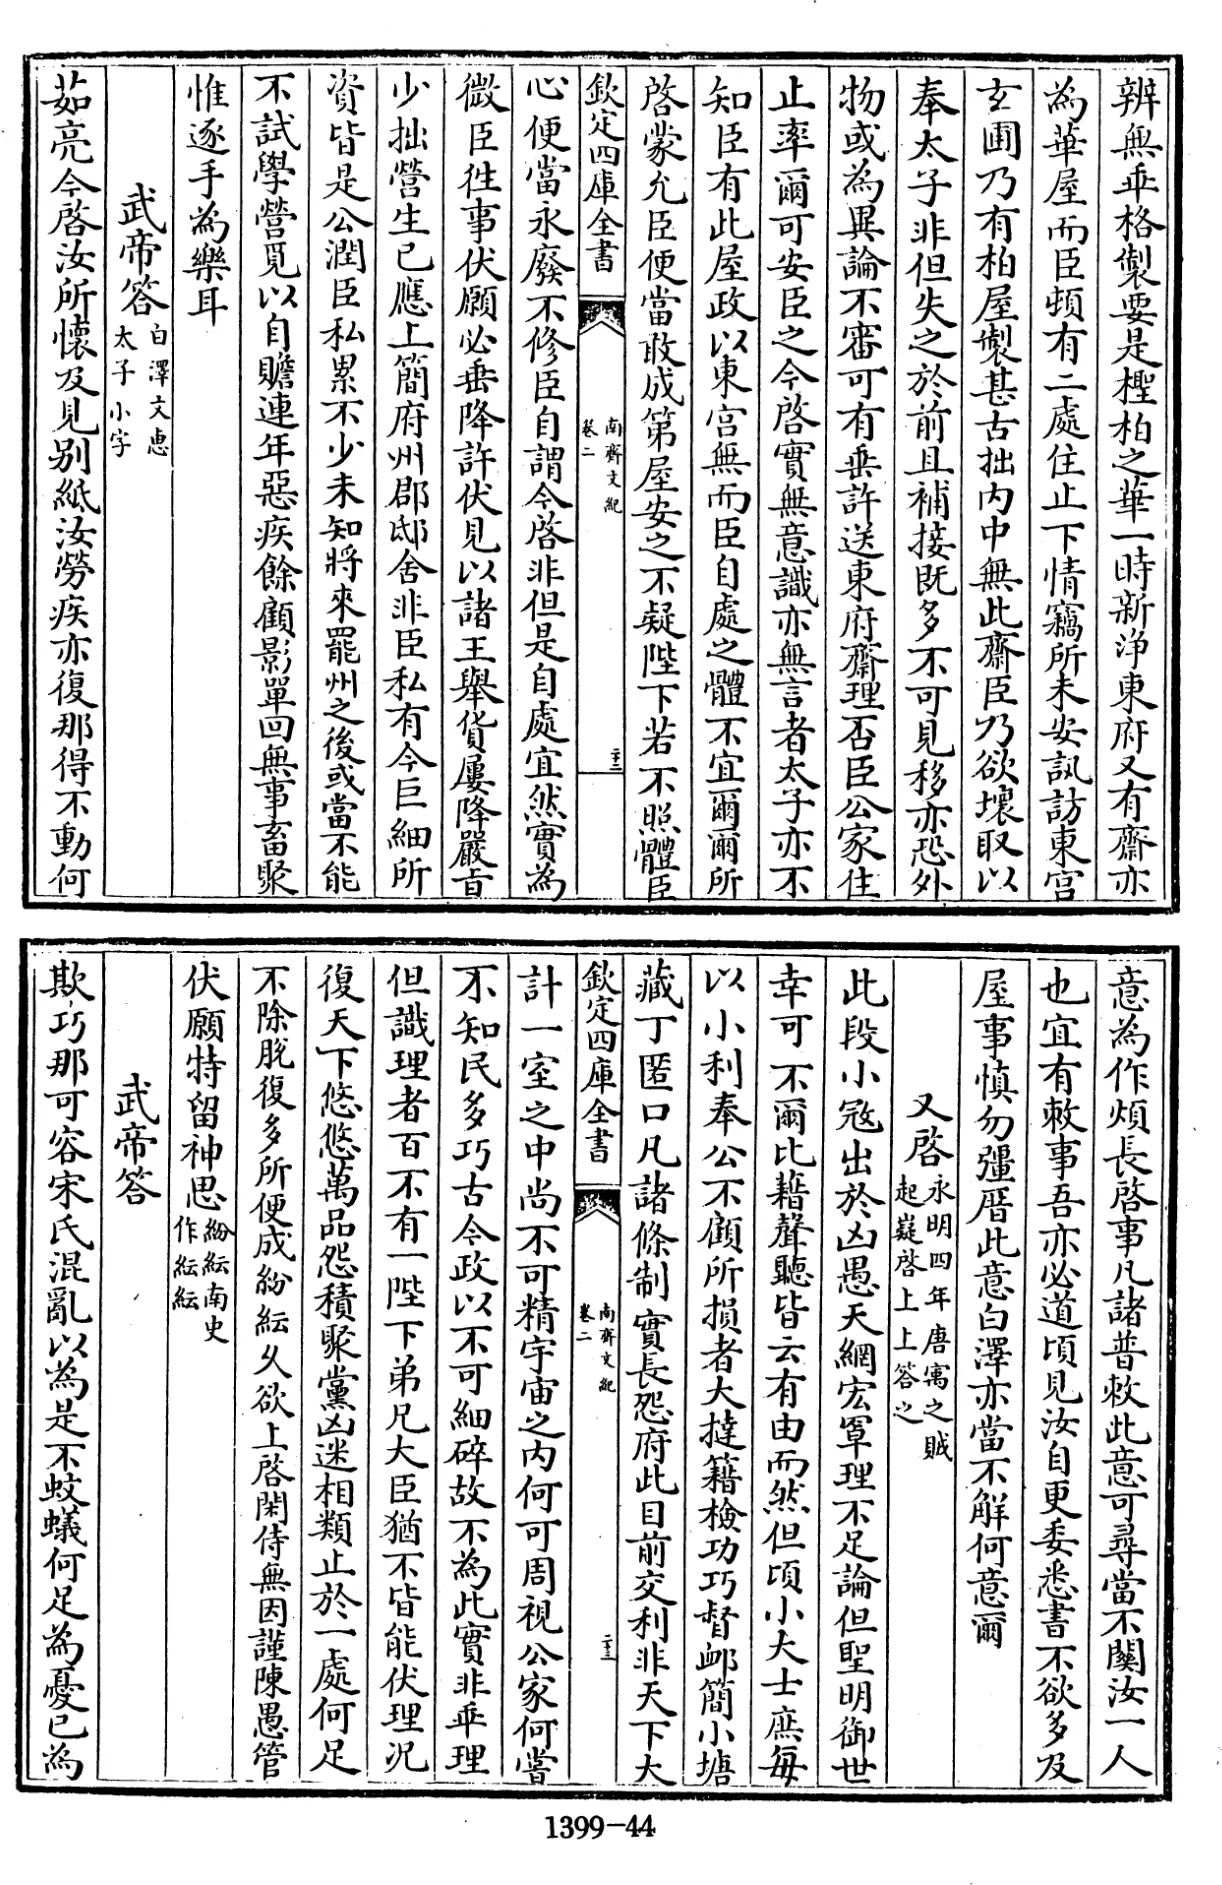 辨無乖格製要是檉柏之華一時新淨東府又有齋亦
為華屋而臣頓有二處住止下情竊所未安訊訪東宮
玄圃乃有柏屋製甚古拙内中無此齋臣乃欲壞取以
奉太子非但失之於前且補接既多不可見移亦恐外
物或為異論不審可有垂許送東府齋理否臣公家住
止率爾可安臣之今啓實無意識亦無言者太子亦不
知臣有此屋政以東宮無而臣自處之體不宜爾爾所
啓蒙允臣便當敢成第屋安之不疑陛下若不照體臣
欽定四庫全書
南齊文紀
卷二
二十二
心便當永廢不修臣自謂今啓非但是自處宜然實為
微臣徃事伏願必垂降許伏見以諸王舉貨屢降嚴旨
少拙營生已應上簡府州郡邸舍非臣私有今巨細所
資皆是公潤臣私累不少未知將來罷州之後或當不能
不試學營覓以自贍連年惡疾餘顧影單回無事畜聚
惟逐手為樂耳
武帝答
白澤文惠
太子小字
茹亮今啓汝所懐及見别紙汝勞疾亦復那得不動何
意為作煩長啓事凡諸普敕此意可尋當不關汝一人
也宜有敕事吾亦必道頃見汝自更委悉書不欲多及
屋事慎勿彊厝此意白澤亦當不解何意爾
又啓
永明四年唐寓之賊
起嶷啓上上答之
此段小宼出於凶愚天網宏罩理不足論但聖明御世
幸可不爾比藉聲聽皆云有由而然但頃小大士庶每
以小利奉公不顧所損者大撻籍檢功巧督䘏簡小塘
藏丁匿口凡諸條制實長怨府此目前交利非天下大
欽定四庫全書
南齊文紀
卷二
二十三
計一室之中尚不可精宇宙之内何可周視公家何嘗
不知民多巧古今政以不可細碎故不為此實非乖理
但識理者百不有一陛下弟兄大臣猶不皆能伏理况
復天下悠悠萬品怨積聚黨凶迷相類止於一處何足
不除脫復多所便成紛紜久欲上啓閑侍無因謹陳愚管
伏願特留神思
紛紜南史
作紜紜
武帝答
欺巧那可容宋氏混亂以為是不蚊蟻何足為憂已為
1399-44